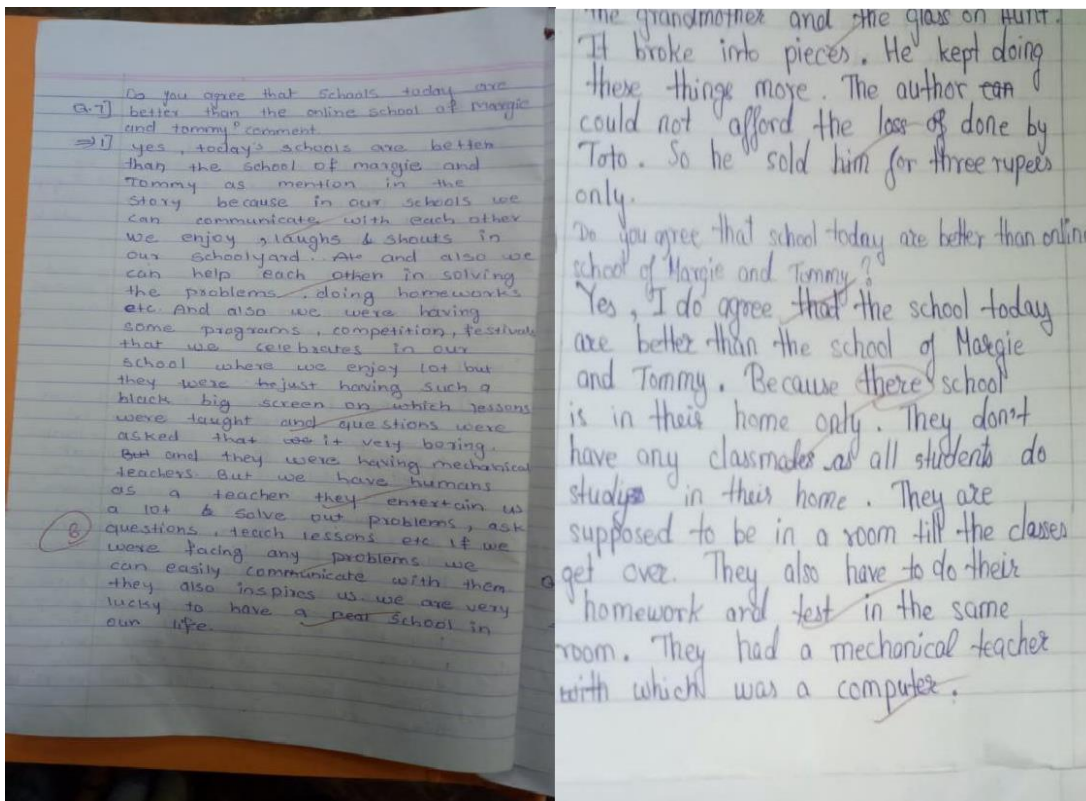 Do you agree that schools today are
Q.7] better than the online school of margie
and tommy? comment
⇒1] yes, today's schools are better
than the school of margie and
Tommy as mention in the
story because in our schools we
can communicate with each other
we enjoy, laughs & shouts in
our schoolyard. and also we
can help each other in solving
the problems, doing homeworks
etc. And also we were having
some programs, competition, festivals
that we celebrates in our
school where we enjoy lot but
they were just having such a
black big screen on which lessons
were taught and questions were
asked that it very boring.
But and they were having mechanical
teachers. But we have humans
as a teacher they entertain us
a lot & solve our problems, ask
questions, teach lessons etc. If we
were facing any problems we
can easily communicate with them
they also inspires us. we are very
lucky to have a real school in
our life.
the grandmother and the glass on Aunt.
It broke into pieces. He kept doing
these things more. The author can
could not afford the loss of done by
Toto. So he sold him for three rupees
only.
Do you agree that school today are better than online
school of Margie and Tommy?
Yes, I do agree that the school today
are better than the school of Margie
and Tommy. Because there school
is in their home only. They don't
have any classmates as all students do
study in their home. They are
supposed to be in a room till the classes
get over. They also have to do their
homework and test in the same
room. They had a mechanical teacher
with which was a computer.